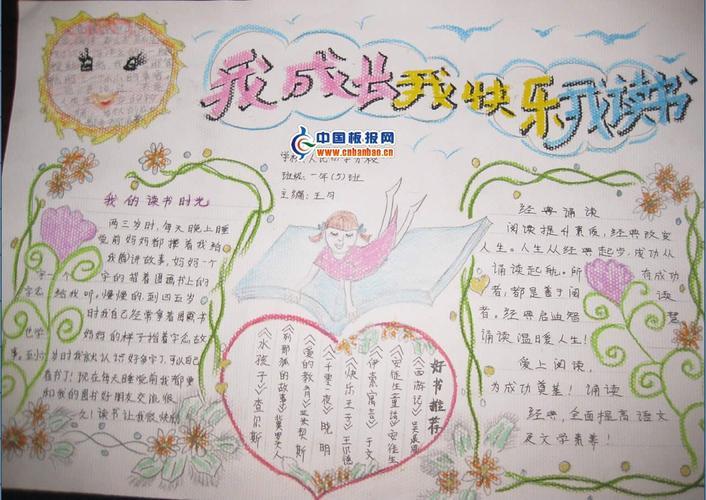 我成长我快乐我读书
中国板报网
www.cnbanbao.cn
班级:一年(5)班
主编:王月
我的读书时光
两三岁时,每天晚上睡
觉前妈妈都搂着我给
我讲故事,妈妈一个
字一个字的指着图画书上的
字念给我听。慢慢的到四五岁
时我自己经常拿着图画书
也学妈妈的样子指着字念故
事。到小
为时我就认识好多字了,可以自己
看书了!现在每天睡觉前我都要
和我的图书好朋友交流很
久!读书让我很快乐!
好书推荐
《西游记》吴承恩
《安徒生童话》安徒生
《伊索寓言》于文
《快乐王子》王尔德
《一千零一夜》晓明
《爱的教育》亚米契斯
《列那狐的故事》季诺夫人
《水孩子》查尔斯
经典诵读
阅读提升素质,经典改变
人生。人生从经典起步,成功从
诵读起航。所有成功
者,都是善于阅读
者。经典启迪智慧
诵读温暖人生!
爱上阅读,
为成功奠基!诵读
经典,全面提高语文
及文学素养!